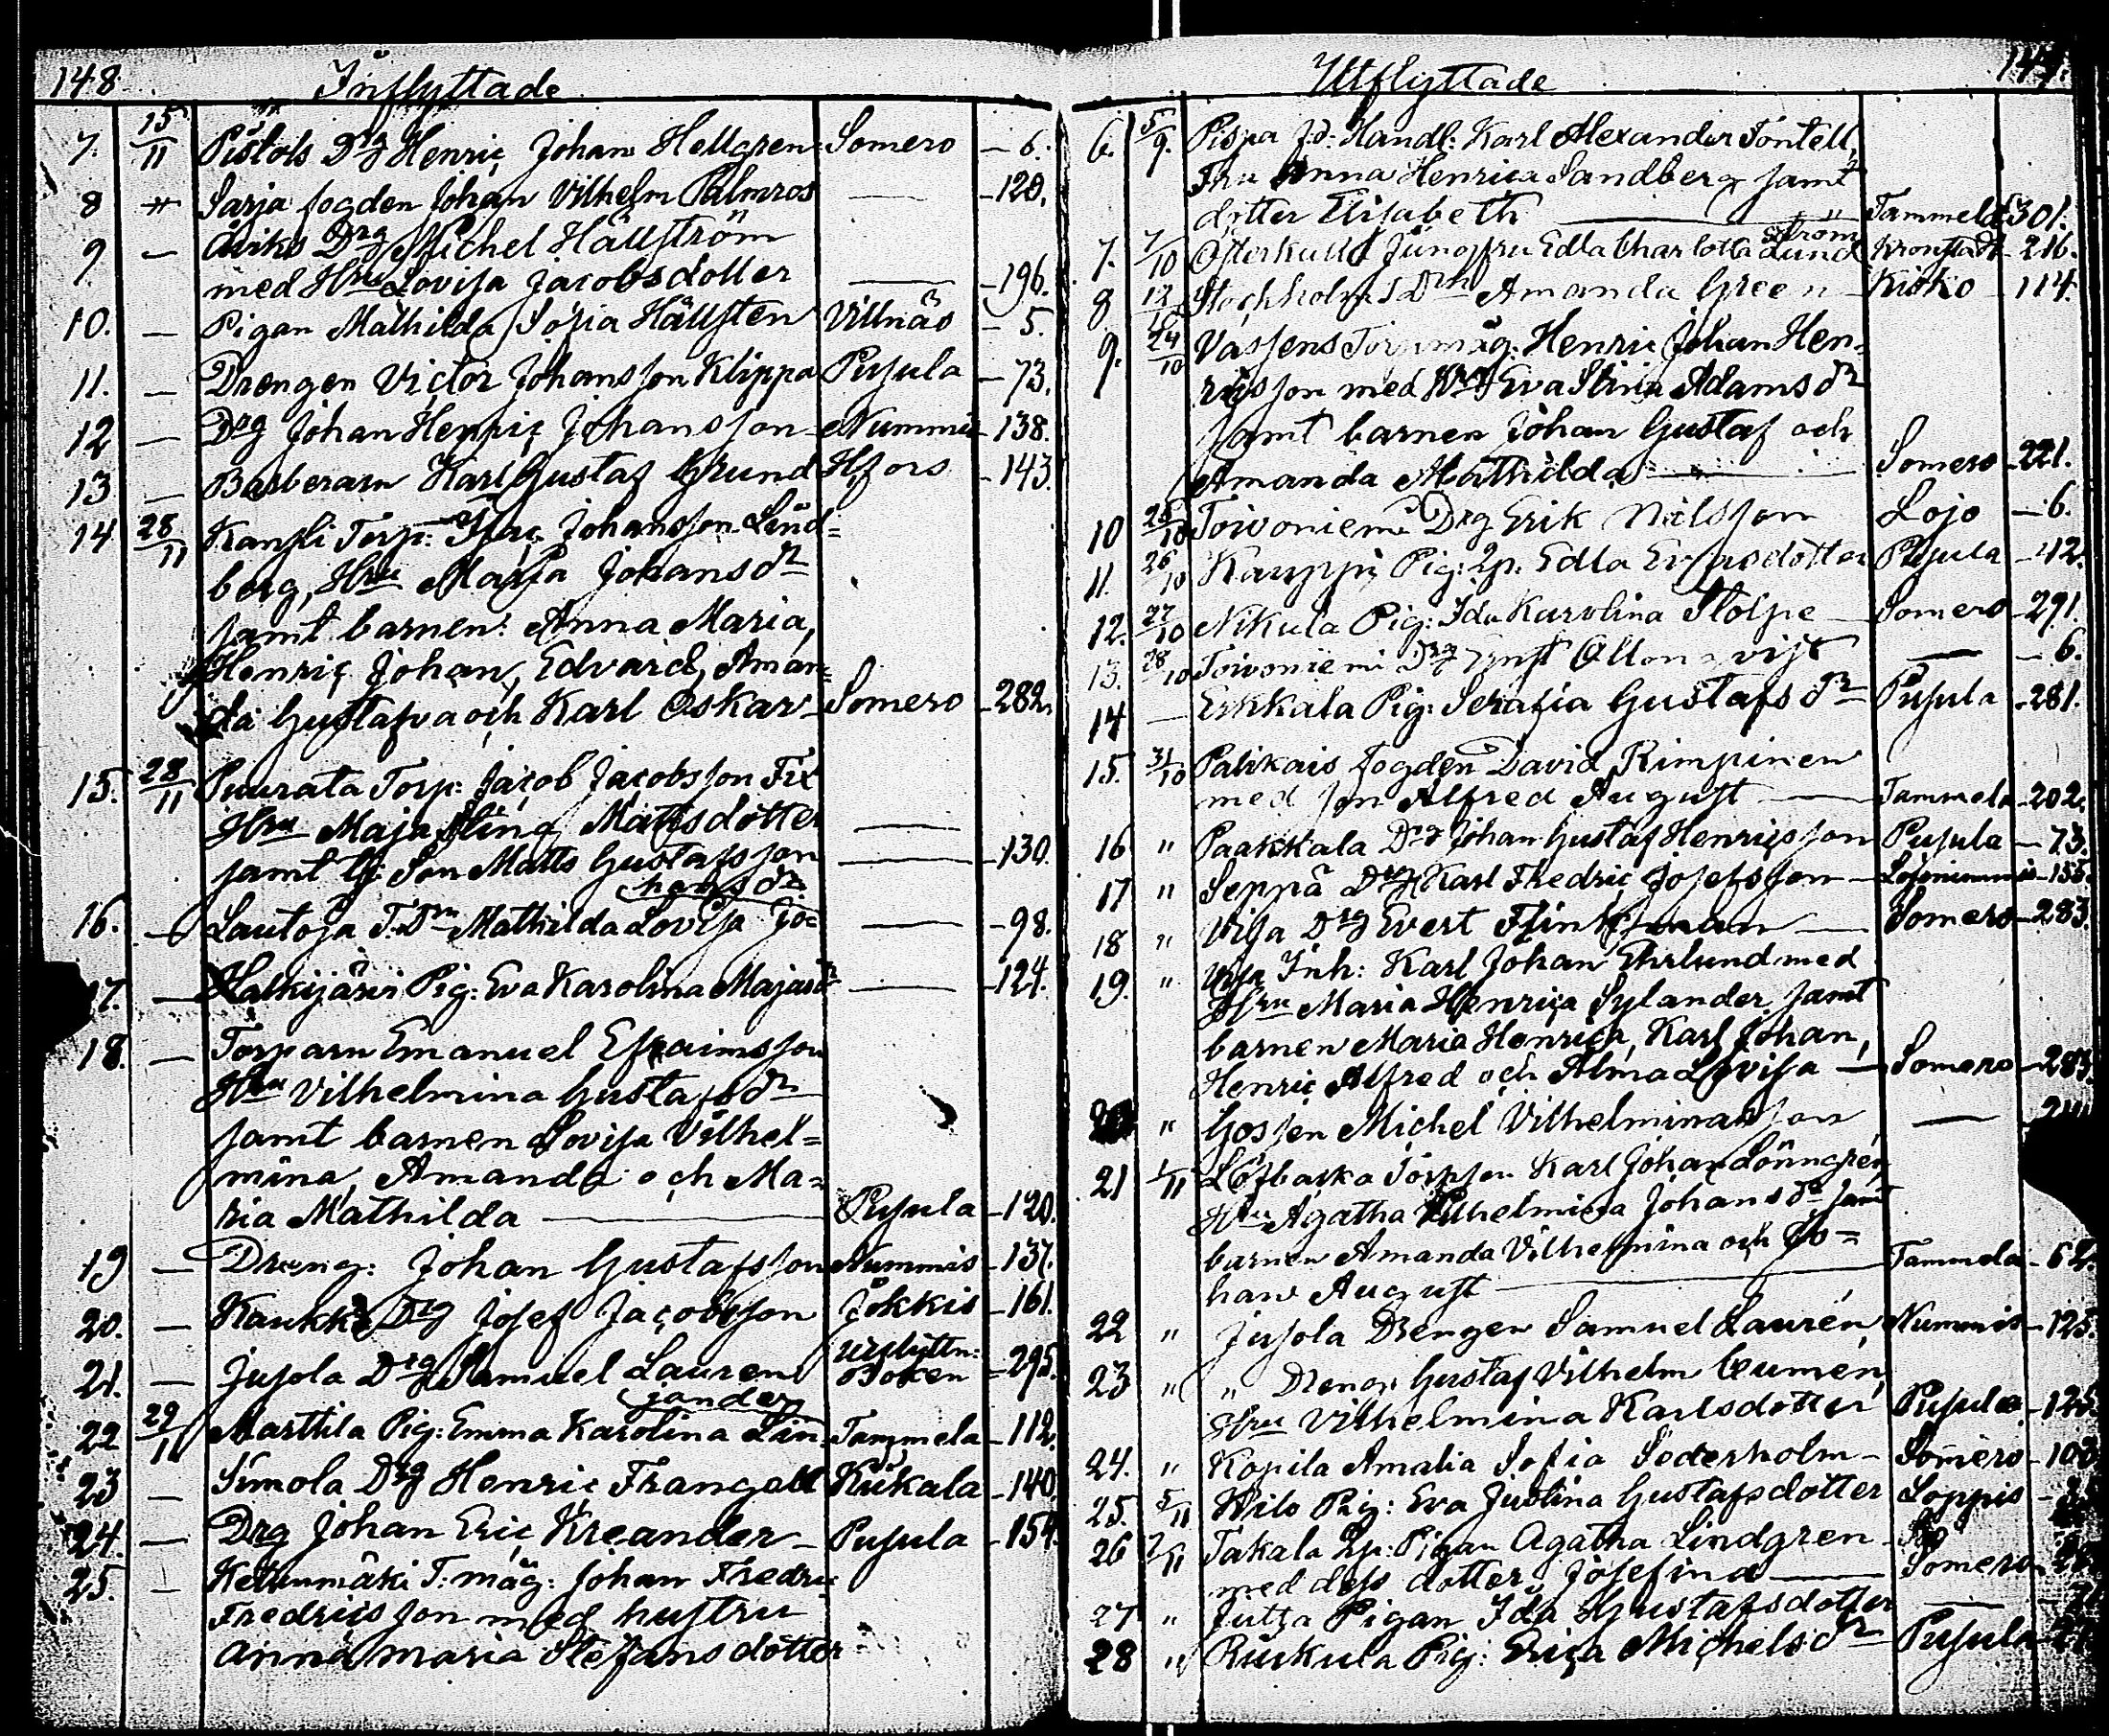 148 Inflyttade
7. 15/11 Pistols Drg Henric Johan Hellgren Somero - 6.
8 Sarja fogden Johan Vilhelm Palmros — - 120.
9 — Äviks Drg Michel Hällström
med Hru Lovisa Jacobsdotter — - 196.
10. — Pigan Mathilda Sofia Hällsten Villnäs - 5.
11. — Drengen Victor Johansson Klippa Pusula - 73.
12 — Drg Johan Henric Johansson - Nummis - 138.
13 — Barberarn Karl Gustaf Grund Hfors - 143.
14 28/11 Torp: Isac Johansson Lind=
berg, Hru Maja Johansdr
samt barnen: Anna Maria,
Henric Johan, Edvard, Aman=
da Gustafva och Karl Oskar - Somero - 282.
15. 28/11 Puurata Torp: Jacob Jacobsson Fix
Hru Maja Stina Mattsdotter —
samt Son Matts Gustafsson — - 130.
hansdr
16. — Lautoja Mathilda Lovisa Jo= — - 98.
17. — Halkijärvi Pig: Eva Karolina Majasdr — - 124.
18. — Torparn Emanuel Efraimsson
Hru Vilhelmina Gustafsdr
samt barnen Lovisa Vilhel=
mina, Amanda och Ma=
ria Mathilda — Pusula - 120.
19 — Dreng: Johan Gustafsson Nummis - 137.
20. — Drg Josef Jacobsson Jokkis - 161.
21. — Jusola Drg Samuel Lauren Boken - 295.
gander
22 29/11 Marttila Pig: Emma Karolina Lin= Tammela - 112.
23 — Simola Drg Henric Kiikala - 140.
24. — Drg Johan Eric Kreander - Pusula - 154.
25. — T: måg: Johan Fredric
Fredricsson med hustru
Anna Maria Stefansdotter
Utflyttade 149.
6. 5/9. Pispa Handl: Karl Alexander Tontell,
Fru Anna Henrica Sandberg samt
dotter Elisabeth — Tammela 301.
ström
7. 7/10 Österkulla Jungfru Edla Charlotta Lund Kronstadt - 216.
8 Stockholms Amanda Green - Kisko - 114.
9. 24/10 Torp måg: Henric Johan Hen=
ricsson med Hru Eva Stina Adamsdr
samt barnen Johan Gustaf och
Amanda Mathilda — Somero - 221.
10 25/10 Toivoniemi Drg Erik Nilsson Lojo - 6.
11. 26/10 Kauppi Pig: Edla Pusula - 42.
12. 27/10 Nikula Pig: Ida Karolina Stolpe - Somero - 291.
13. 28/10 Toivoniemi Drg — - 6.
14 — Erkkala Pig: Serafia Gustafsdr Pusula - 281.
15. 31/10 Palikais fogden David Rimpinen
med son Alfred August — Tammela - 202.
16 " Paakkala Drg Johan Gustaf Henricsson Pusula - 73.
17 " Seppä Drg Karl Fredric Josefsson - Lojonummis - 155.
18 " Viksa Drg Evert — Somero - 283.
19. " Inh: Karl Johan Ehrlund med
Hru Maria Henrica Sylander samt
barnen Maria Henrica, Karl Johan,
Henric Alfred och Alma Lovisa — Somero - 283.
" Gossen Michel Vilhelminasson —
21 1/11 Löfbacka Torpson Karl Johan Lönngren,
Hru Agatha Vilhelmina Johansdr samt
barnen Amanda Vilhelmina och Jo=
han August — Tammela - 62.
22 " Jusola Drengen Samuel Lauren, Nummis - 125.
23 " " Dreng: Gustaf Vilhelm
Hru Vilhelmina Karlsdotter Pusula - 125.
24. " Kopila Amalia Sofia Sederholm - Somero
25. 5/11 Pig: Eva Justina Gustafsdotter Loppis
26 7/11 Takala Pigan Agatha Lindgren
med dess dotter Josefina — Somero
27 " Pigan Ida Gustafsdotter —
28 " Ruskula Pig: Erica Michelsdr - Pusula